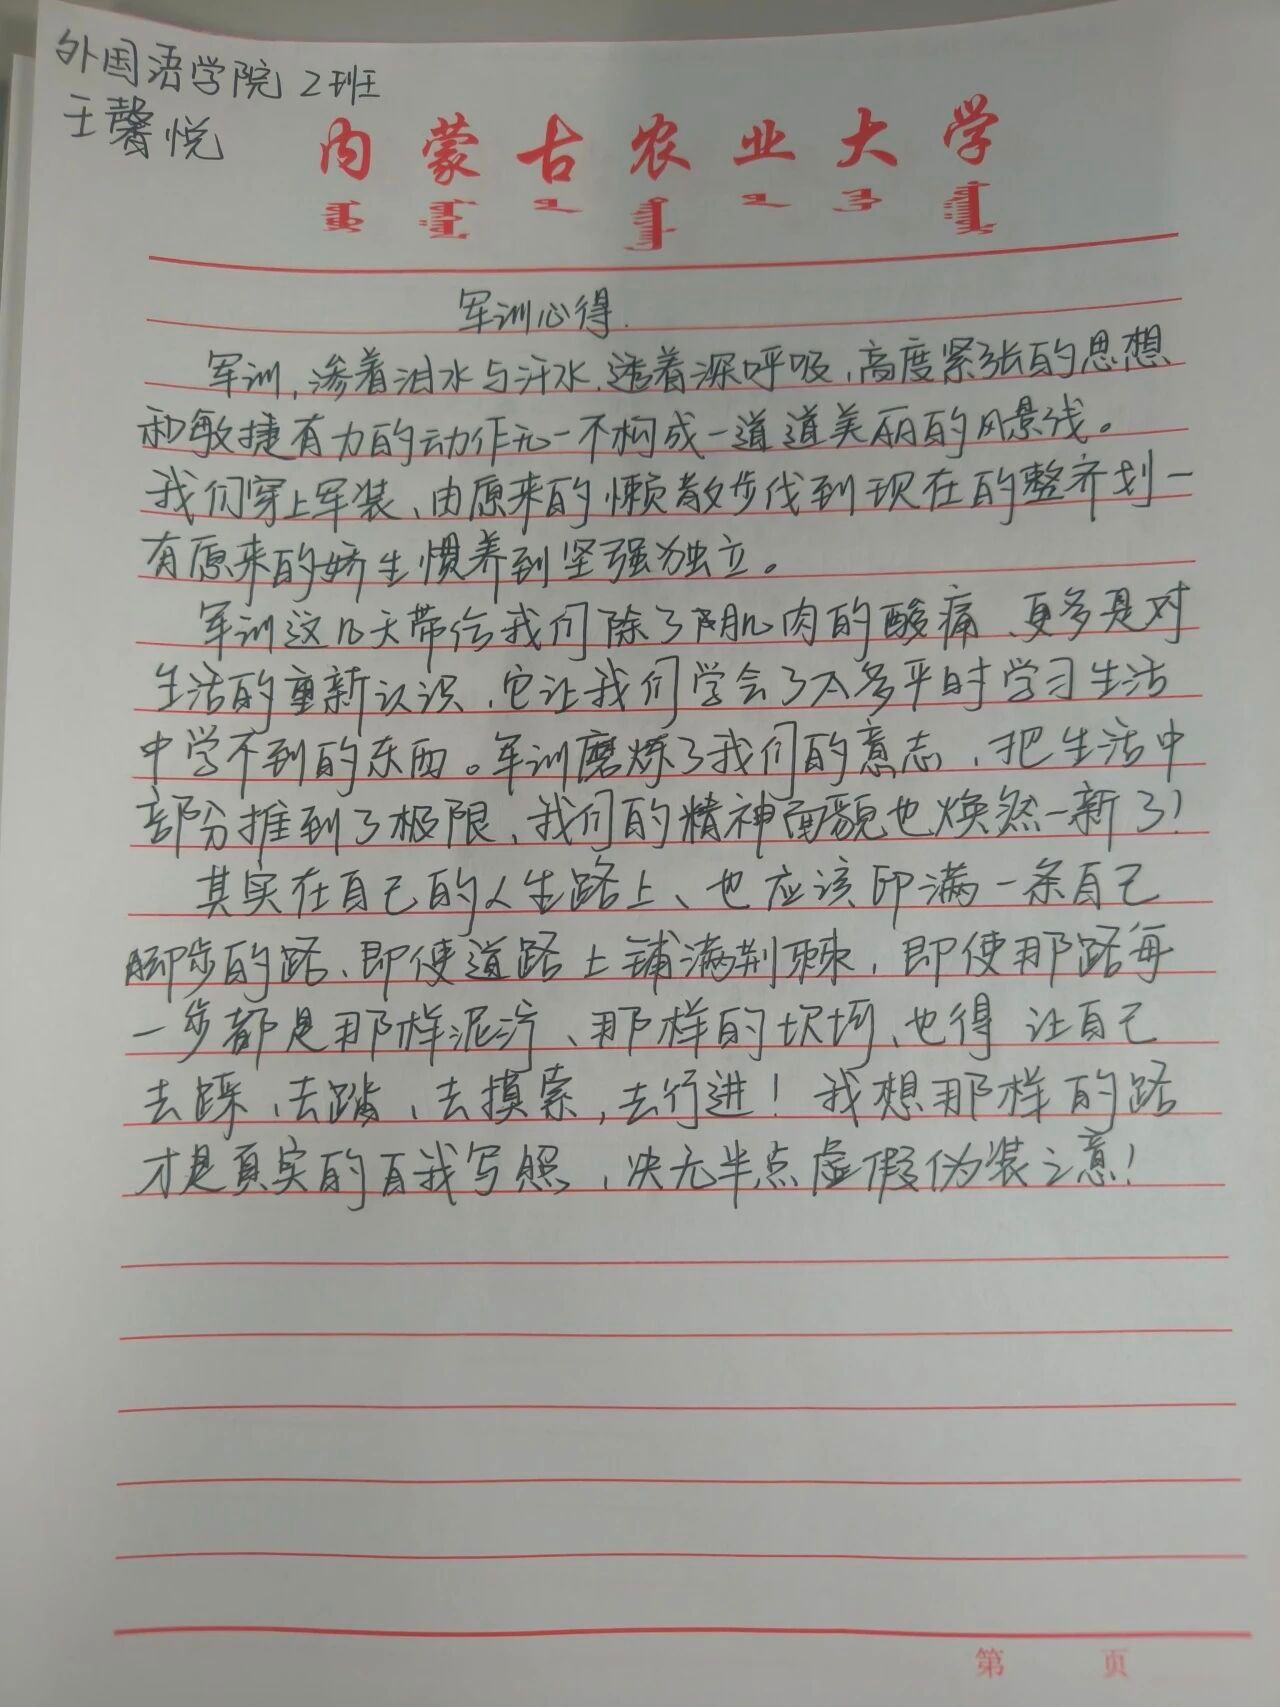 外国语学院 2班
王馨悦
内蒙古农业大学
军训心得.
军训,渗着泪水与汗水,透着深呼吸,高度紧张的思想
和敏捷有力的动作无一不构成一道道美丽的风景线。
我们穿上军装、由原来的懒散步伐到现在的整齐划一
有原来的娇生惯养到坚强独立。
军训这几天带给我们除了肌肉的酸痛、更多是对
生活的重新认识,它让我们学会了太多平时学习生活
中学不到的东西。军训磨炼了我们的意志,把生活中
部分推到了极限、我们的精神面貌也焕然一新了!
其实在自己的人生路上、也应该印满一条自己
脚步的路、即使道路上铺满荆棘,即使那路每
一步都是那样泥泞、那样的坎坷、也得让自己
去踩、去踏、去摸索,去行进!我想那样的路
才是真实的自我写照,决无半点虚假伪装之意!
第 页